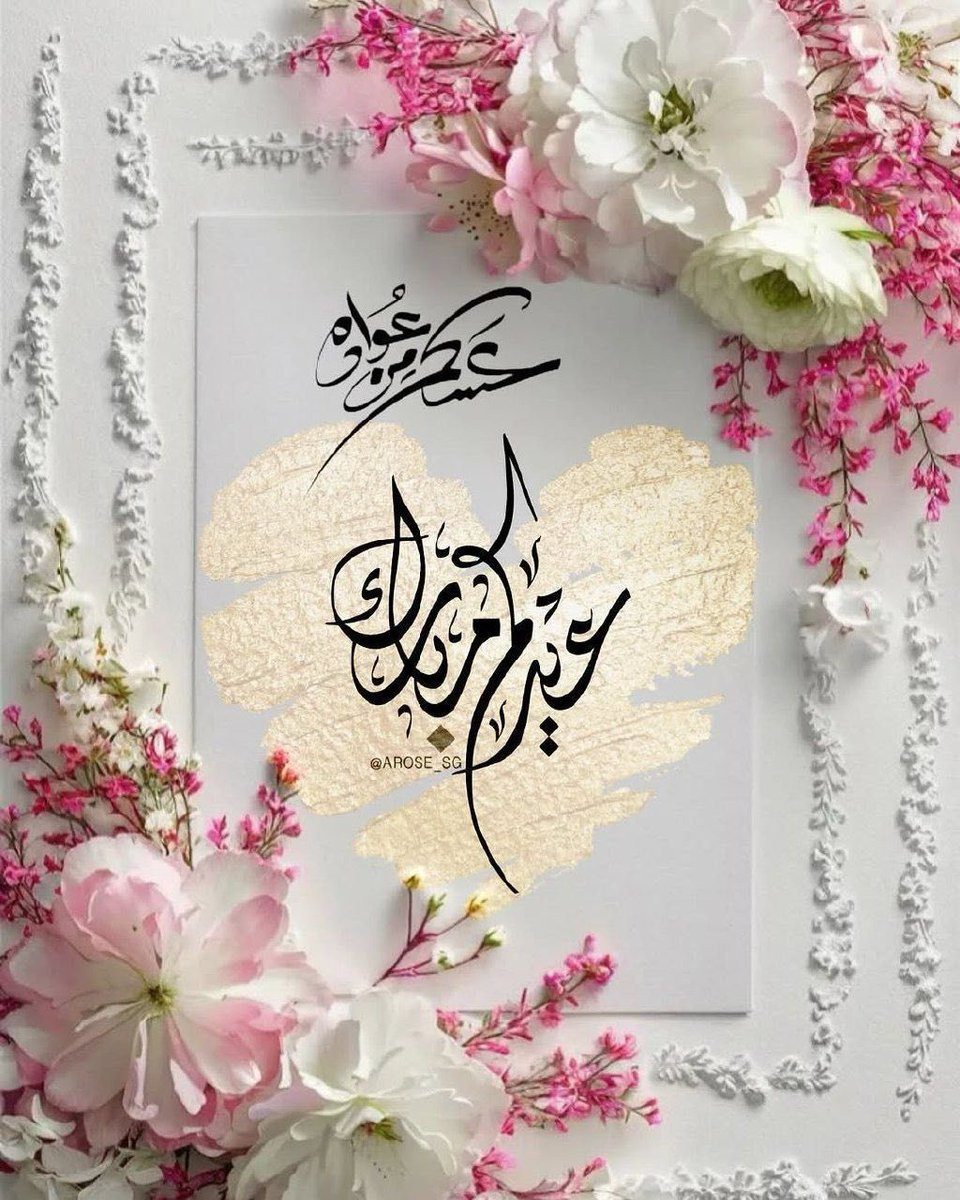 عساكم من عواده
عيدكم مبارك
@AROSE_SG